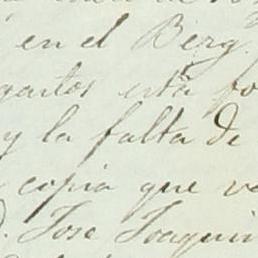 en el Berg.
gastos está fo
y la falta de
copia que ve
D. Jose Joaquin